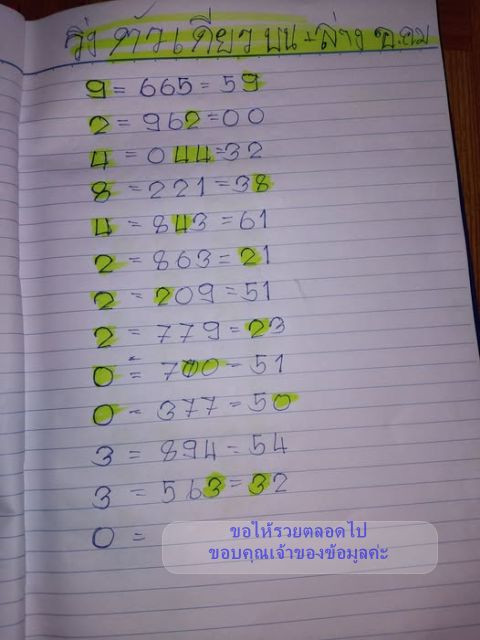 วิ่ง ตัวเดียว บน - ล่าง
9 = 665 = 59
2 = 962 = 00
4 = 044 = 32
8 = 221 = 38
4 = 843 = 61
2 = 863 = 21
2 = 209 = 51
2 = 779 = 23
0 = 700 = 51
0 = 377 = 50
3 = 894 = 54
3 = 563 = 32
0 =
ขอให้รวยตลอดไป
ขอบคุณเจ้าของข้อมูลค่ะ